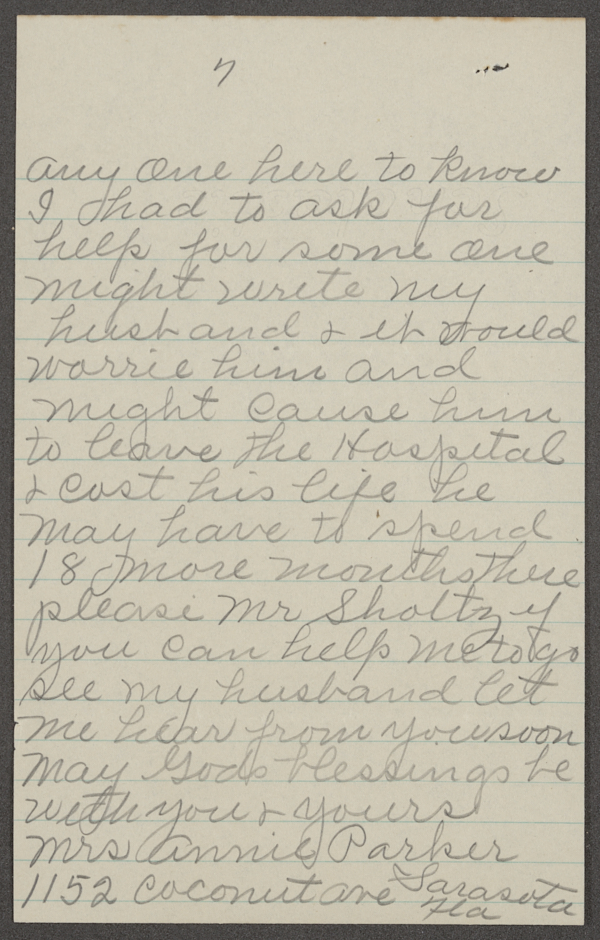 7
any one here to know
I had to ask for
help for some one
might write my
husband & it would
worrie him and
might cause him
to leave the Hospital
& cost his life he
may have to spend
18 more months there
please Mr Sholtz if
you can help me to go
see my husband let
me hear from you soon
May Gods blessings be
with you & yours
Mrs Annie Parker
1152 Coconut ave Sarasota
Fla